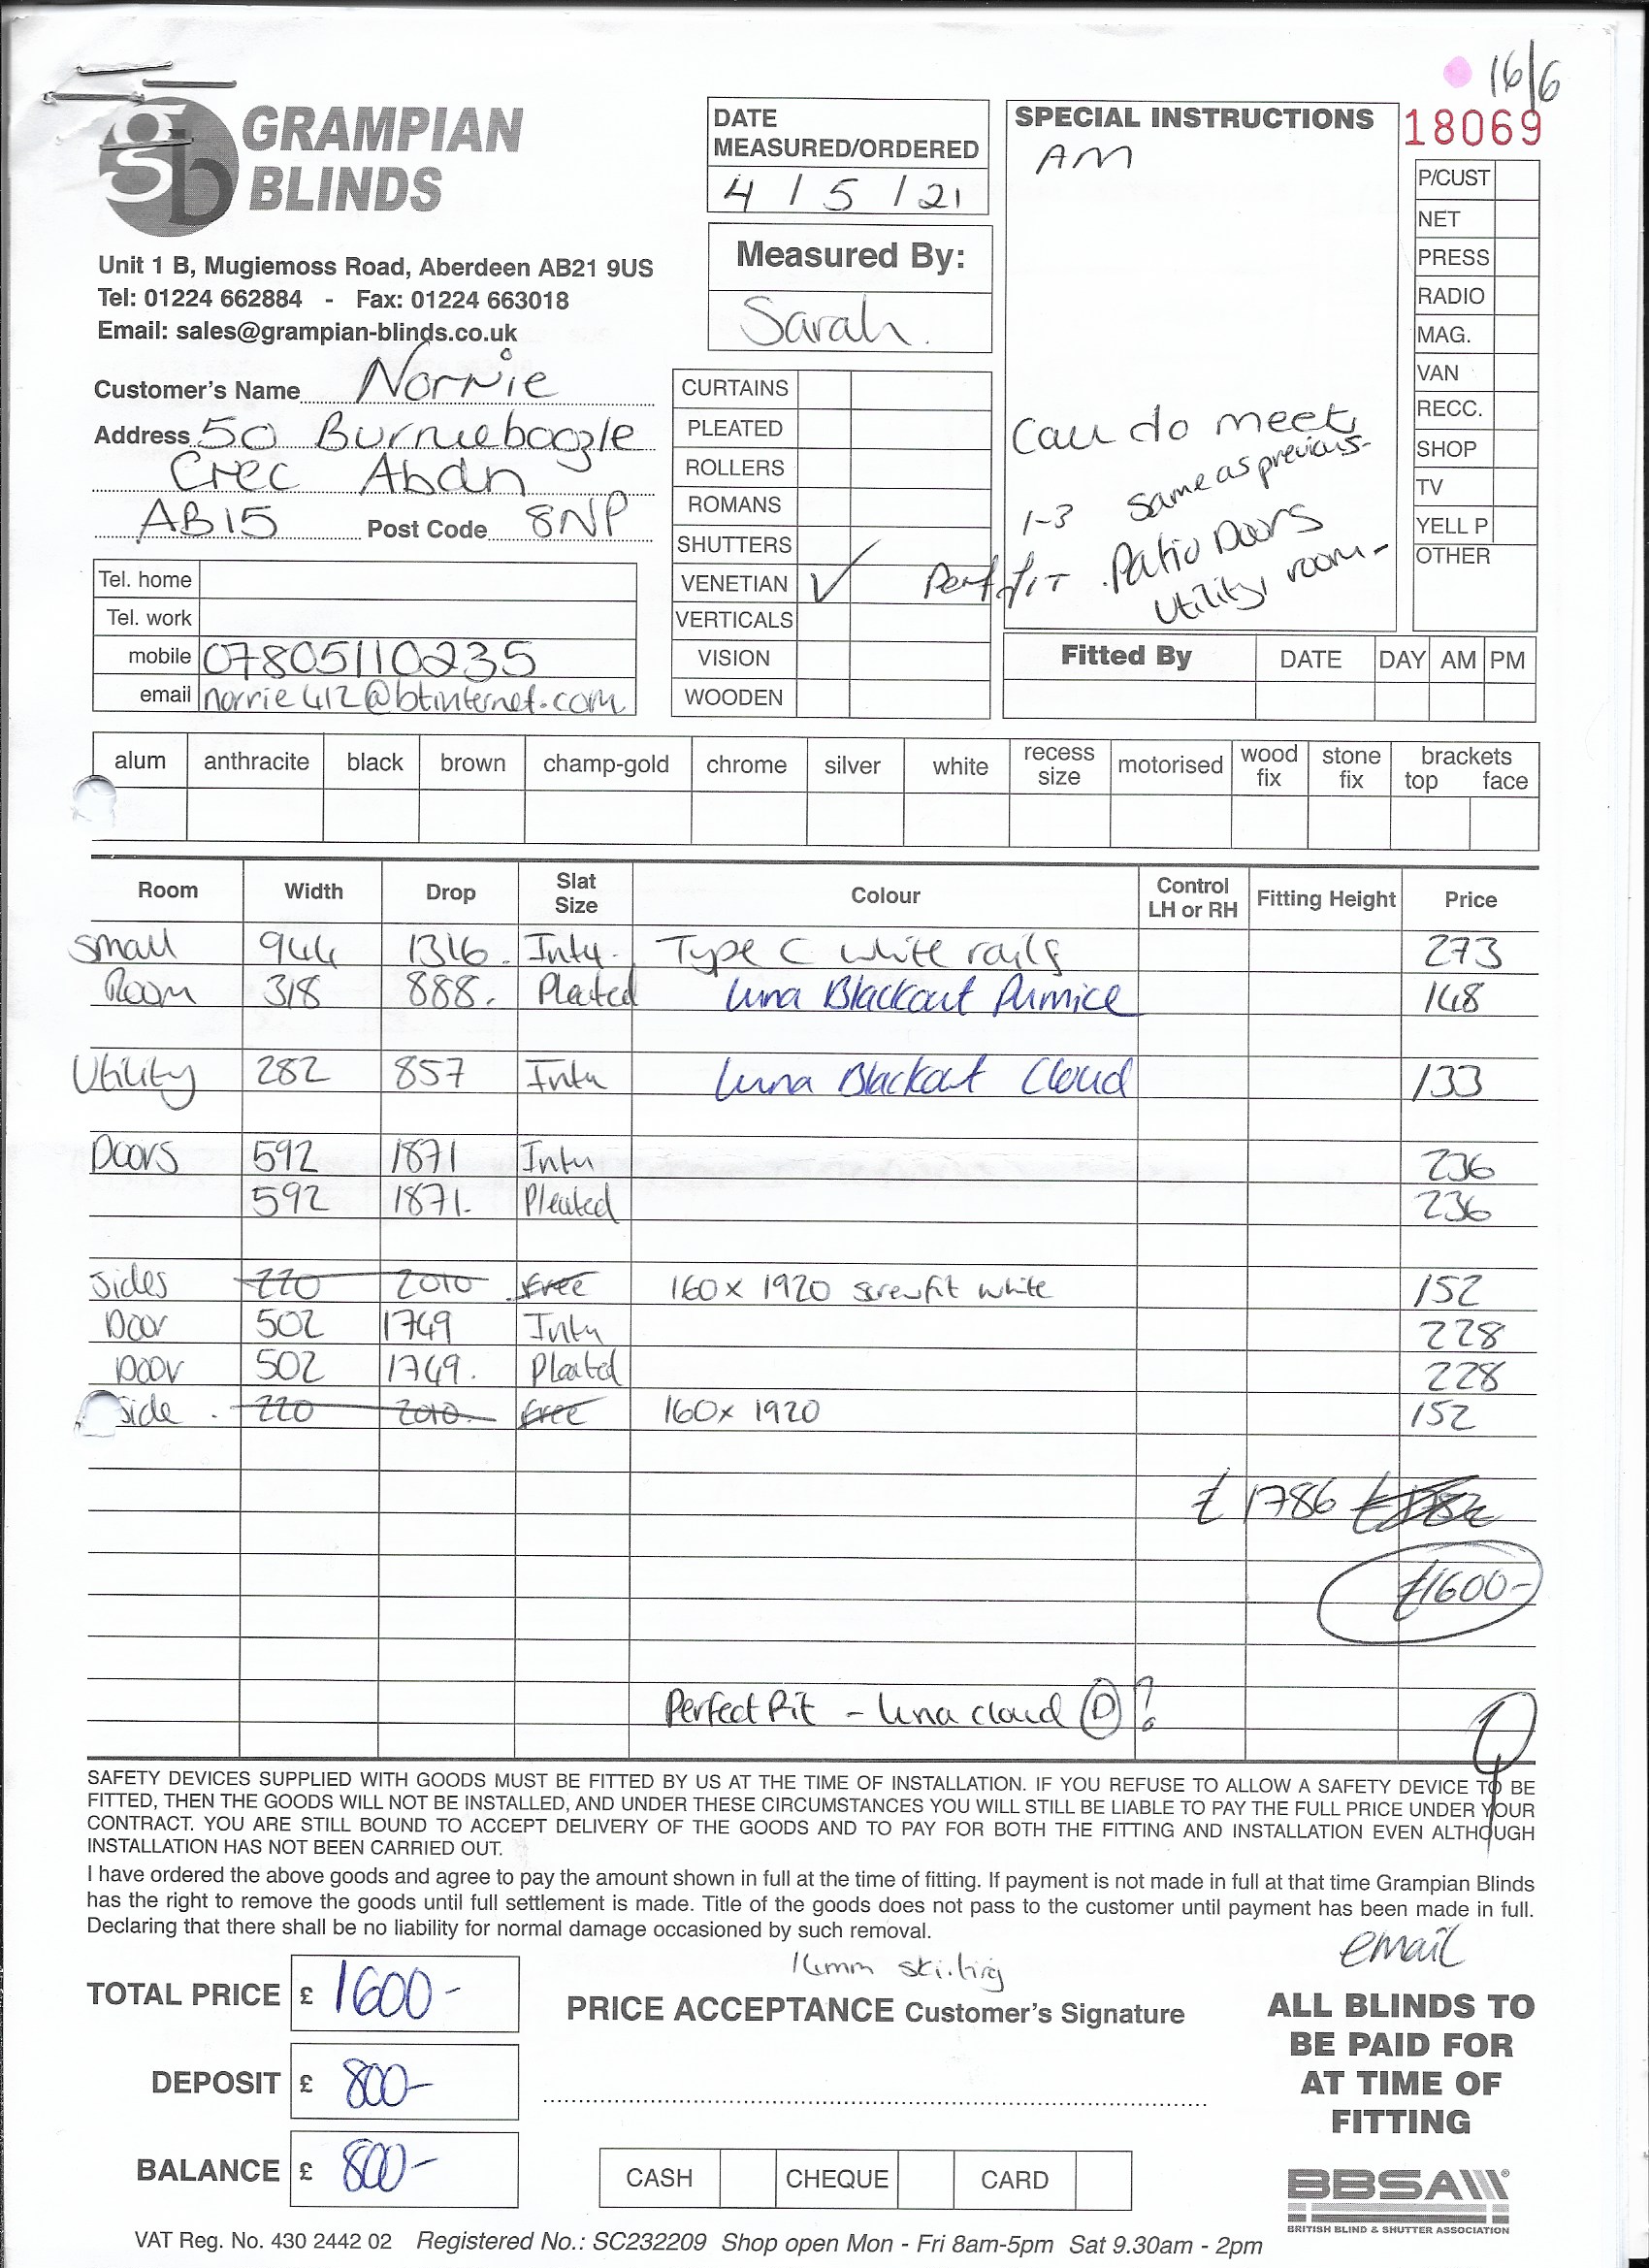 16/6
GRAMPIAN
BLINDS
Unit 1 B, Mugiemoss Road, Aberdeen AB21 9US
Tel: 01224 662884 - Fax: 01224 663018
Email: sales@grampian-blinds.co.uk
Customer's Name Norrie
Address 50 Burnieboozle
Crec Abdn
AB15 Post Code 8NP
Tel. home
Tel. work
mobile 07805110235
email norrie412@btinternet.com
DATE
MEASURED/ORDERED
4 / 5 / 21
Measured By:
Sarah.
CURTAINS
PLEATED
ROLLERS
ROMANS
SHUTTERS
VENETIAN ✓
VERTICALS
VISION
WOODEN
SPECIAL INSTRUCTIONS
AM
Can do meet
same as previous-
1-3
Perffit Patio Doors
Utility room-
18069
P/CUST
NET
PRESS
RADIO
MAG.
VAN
RECC.
SHOP
TV
YELL P
OTHER
Fitted By DATE DAY AM PM
alum anthracite black brown champ-gold chrome silver white recess size motorised wood fix stone fix brackets top face
Room Width Drop Slat Size Colour Control LH or RH Fitting Height Price
Small 944 1316. Intu. Type C white rails 273
Room 318 888. Pleated Luna Blackout Pumice 148
Utility 282 857 Intu Luna Blackout Cloud 133
Doors 592 1871 Intu 236
592 1871. Pleated 236
Sides 220 2010 free 160 x 1920 screwfit white 152
Door 502 1749 Intu 228
Door 502 1749. Pleated 228
Side. 220 2010. free 160x 1920 152
£1786
£1600-
Perfect Fit - luna cloud D ?
SAFETY DEVICES SUPPLIED WITH GOODS MUST BE FITTED BY US AT THE TIME OF INSTALLATION. IF YOU REFUSE TO ALLOW A SAFETY DEVICE TO BE
FITTED, THEN THE GOODS WILL NOT BE INSTALLED, AND UNDER THESE CIRCUMSTANCES YOU WILL STILL BE LIABLE TO PAY THE FULL PRICE UNDER YOUR
CONTRACT. YOU ARE STILL BOUND TO ACCEPT DELIVERY OF THE GOODS AND TO PAY FOR BOTH THE FITTING AND INSTALLATION EVEN ALTHOUGH
INSTALLATION HAS NOT BEEN CARRIED OUT.
I have ordered the above goods and agree to pay the amount shown in full at the time of fitting. If payment is not made in full at that time Grampian Blinds
has the right to remove the goods until full settlement is made. Title of the goods does not pass to the customer until payment has been made in full.
Declaring that there shall be no liability for normal damage occasioned by such removal.
TOTAL PRICE £ 1600-
DEPOSIT £ 800-
BALANCE £ 800-
PRICE ACCEPTANCE Customer's Signature
CASH CHEQUE CARD
email
ALL BLINDS TO
BE PAID FOR
AT TIME OF
FITTING
BBSA
BRITISH BLIND & SHUTTER ASSOCIATION
VAT Reg. No. 430 2442 02 Registered No.: SC232209 Shop open Mon - Fri 8am-5pm Sat 9.30am - 2pm